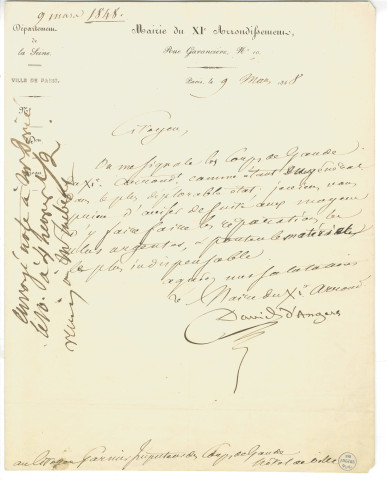 9 mars 1848.
Département
de
la Seine.
VILLE DE PARIS.
Mairie du XIe Arrondissement,
Rue Garancière, No 10
Paris, le 9 Mars 1848
Citoyen,
On me signale les Corps de Garde
du XIe arrondt comme étant en général
dans le plus déplorable état. je viens vous
prier d'aviser de suite aux moyens
d'y faire faire les réparations les
plus urgentes, & porter le matériel
le plus indispensable.
agréez mes salutations
le Maire du XIe arrondt
David d'Angers
au Citoyen Garnier Inspecteur des Corps de Garde
hôtel de ville